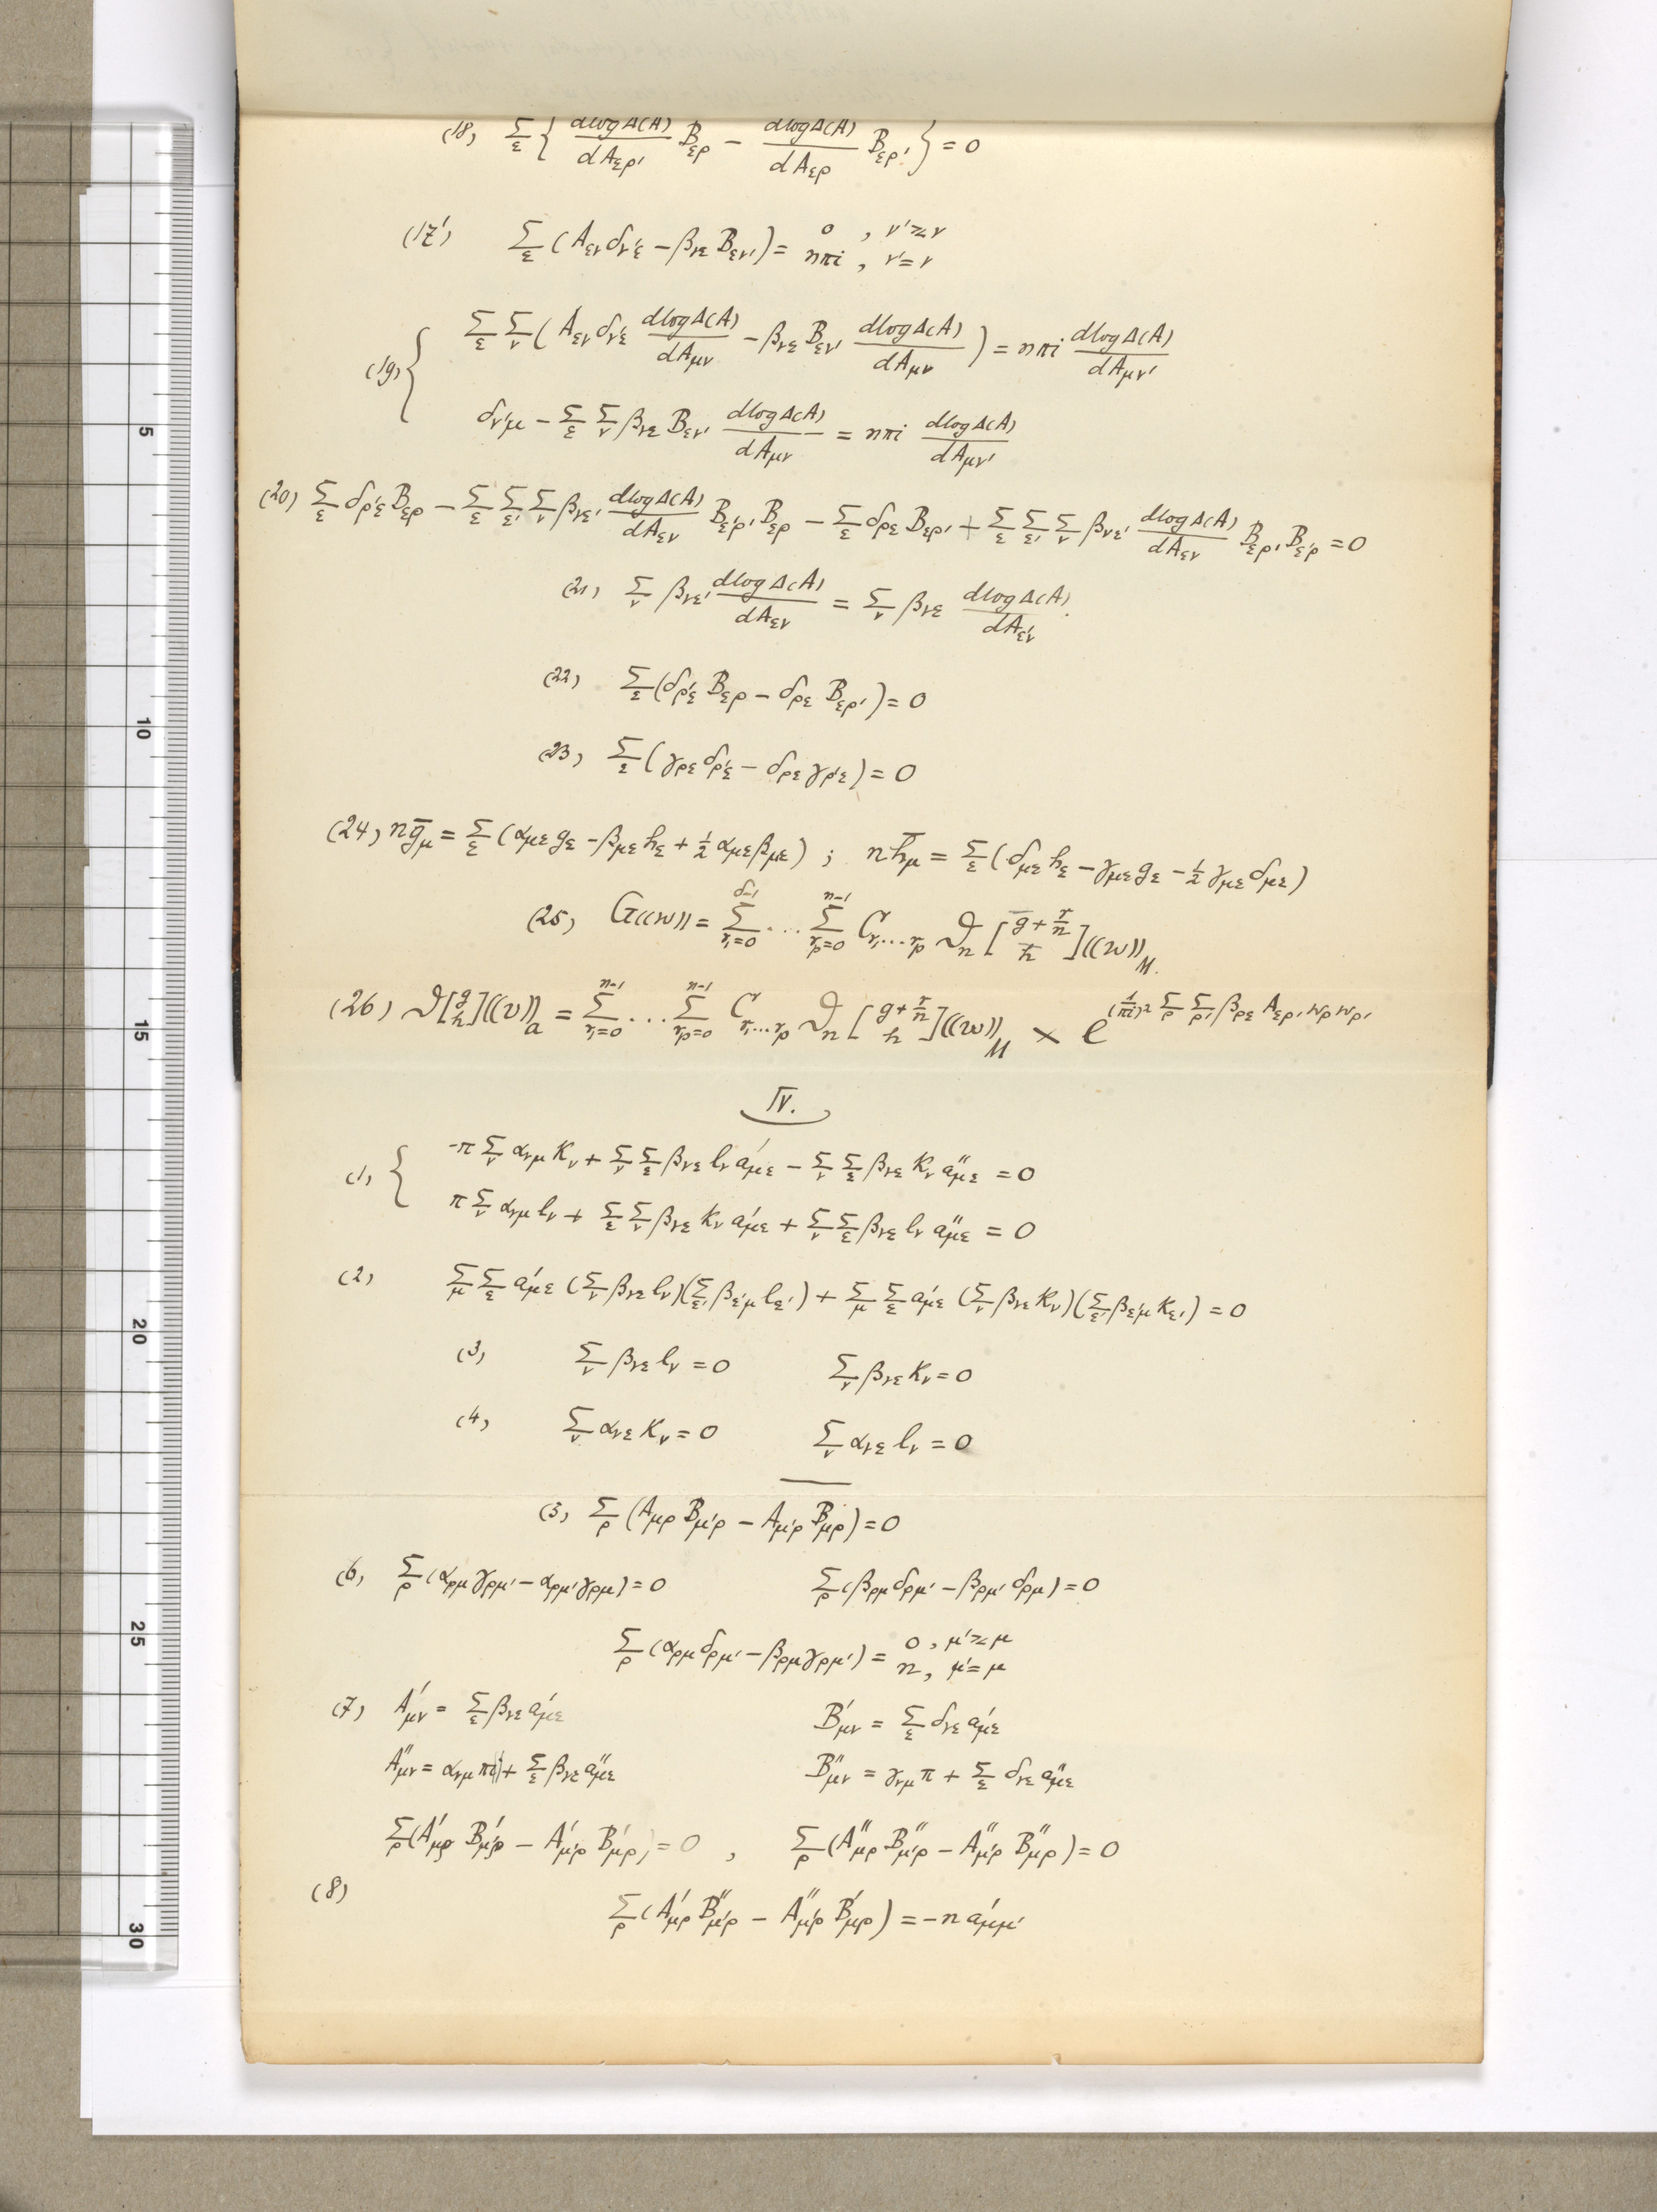 (18) Σ_ε { dlogΔ(A)/dA_ερ' B_ερ − dlogΔ(A)/dA_ερ B_ερ' } = 0
(17') Σ_ε (A_εν δ_ν'ε − β_νε B_εν') = 0 , ν' ≷ ν
nπi , ν' = ν
(19) { Σ_ε Σ_ν ( A_εν δ_ν'ε dlogΔ(A)/dA_μν − β_νε B_εν' dlogΔ(A)/dA_μν ) = nπi dlogΔ(A)/dA_μν'
δ_ν'μ − Σ_ε Σ_ν β_νε B_εν' dlogΔ(A)/dA_μν = nπi dlogΔ(A)/dA_μν'
(20) Σ_ε δ_ρ'ε B_ερ − Σ_ε Σ_ε' Σ_ν β_νε' dlogΔ(A)/dA_εν B_ε'ρ' B_ερ − Σ_ε δ_ρε B_ερ' + Σ_ε Σ_ε' Σ_ν β_νε' dlogΔ(A)/dA_εν B_ερ' B_ε'ρ = 0
(21) Σ_ν β_νε' dlogΔ(A)/dA_εν = Σ_ν β_νε dlogΔ(A)/dA_ε'ν .
(22) Σ_ε (δ_ρ'ε B_ερ − δ_ρε B_ερ') = 0
(23) Σ_ε (γ_ρε δ_ρ'ε − δ_ρε γ_ρ'ε) = 0
(24) n ḡ_μ = Σ_ε (α_με g_ε − β_με h_ε + ½ α_με β_με) ; n h̄_μ = Σ_ε (δ_με h_ε − γ_με g_ε − ½ γ_με δ_με)
(25) G((w)) = Σ_{r₁=0}^{δ−1} ... Σ_{r_p=0}^{n−1} C_{r₁...r_p} ϑ_n [ḡ + r/n / h̄]((w))_M.
(26) ϑ[g/h]((v))_a = Σ_{r₁=0}^{n−1} ... Σ_{r_p=0}^{n−1} C_{r₁...r_p} ϑ_n [g + r/n / h]((w))_M × e^{(1/πi)² Σ_ρ Σ_ρ' β_ρε A_ερ' w_ρ w_ρ'}
IV.
(1) { −π Σ_ν α_νμ K_ν + Σ_ν Σ_ε β_νε l_ν a'_με − Σ_ν Σ_ε β_νε K_ν a''_με = 0
π Σ_ν α_νμ l_ν + Σ_ε Σ_ν β_νε K_ν a'_με + Σ_ν Σ_ε β_νε l_ν a''_με = 0
(2) Σ_μ Σ_ε a'_με (Σ_ν β_νε l_ν)(Σ_ε' β_ε'μ l_ε') + Σ_μ Σ_ε a'_με (Σ_ν β_νε K_ν)(Σ_ε' β_ε'μ K_ε') = 0
(3) Σ_ν β_νε l_ν = 0 Σ_ν β_νε K_ν = 0
(4) Σ_ν α_νε K_ν = 0 Σ_ν α_νε l_ν = 0
(5) Σ_ρ (A_μρ B_μ'ρ − A_μ'ρ B_μρ) = 0
(6) Σ_ρ (α_ρμ γ_ρμ' − α_ρμ' γ_ρμ) = 0 Σ_ρ (β_ρμ δ_ρμ' − β_ρμ' δ_ρμ) = 0
Σ_ρ (α_ρμ δ_ρμ' − β_ρμ γ_ρμ') = 0 , μ' ≷ μ
n , μ' = μ
(7) A'_μν = Σ_ε β_νε a'_με B'_μν = Σ_ε δ_νε a'_με
A''_μν = α_νμ π + Σ_ε β_νε a''_με B''_μν = γ_νμ π + Σ_ε δ_νε a''_με
Σ_ρ (A'_μρ B'_μ'ρ − A'_μ'ρ B'_μρ) = 0 , Σ_ρ (A''_μρ B''_μ'ρ − A''_μ'ρ B''_μρ) = 0
(8) Σ_ρ (A'_μρ B''_μ'ρ − A''_μ'ρ B'_μρ) = −n a'_μμ'
5
10
15
20
25
30